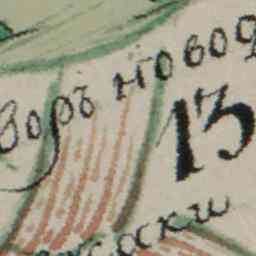 воръ новод
13
оски